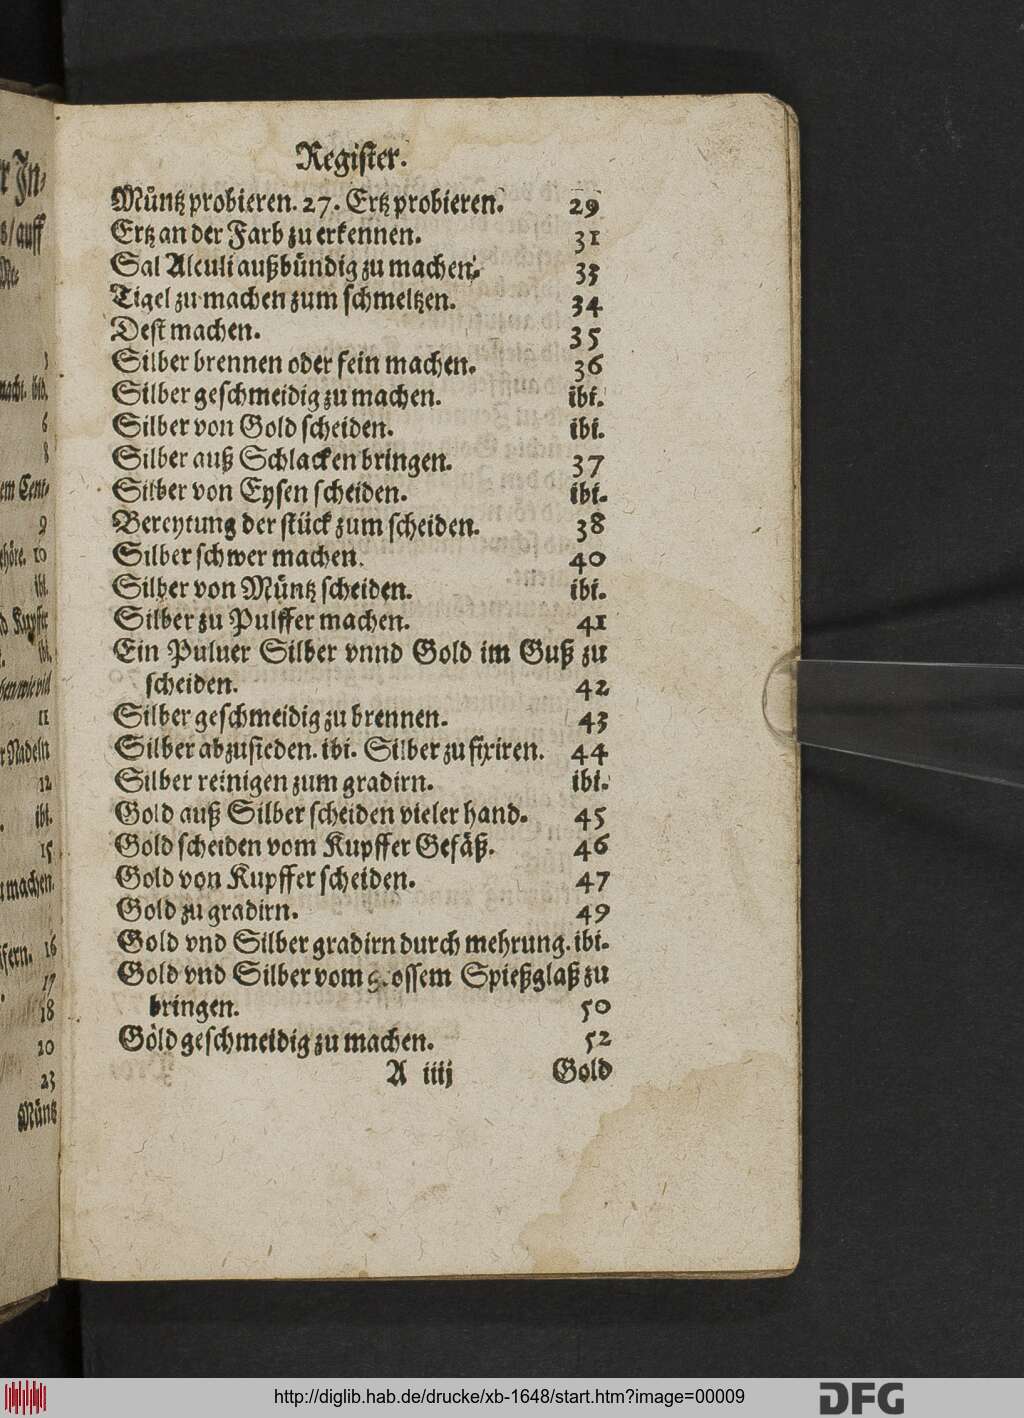 Register.
Müntz probieren. 27. Ertz probieren. 29
Ertz an der Farb zu erkennen. 31
Sal Alculi außbündig zu machen. 33
Tigel zu machen zum schmeltzen. 34
Dest machen. 35
Silber brennen oder fein machen. 36
Silber geschmeidig zu machen. ibi.
Silber von Gold scheiden. ibi.
Silber auß Schlacken bringen. 37
Silber von Eysen scheiden. ibi.
Bereytung der stück zum scheiden. 38
Silber schwer machen. 40
Silber von Müntz scheiden. ibi.
Silber zu Pulffer machen. 41
Ein Puluer Silber vnnd Gold im Guß zu
scheiden. 42
Silber geschmeidig zu brennen. 43
Silber abzusieden. ibi. Silber zu fixiren. 44
Silber reinigen zum gradirn. ibi.
Gold auß Silber scheiden vieler hand. 45
Gold scheiden vom Kupffer Gefäß. 46
Gold von Kupffer scheiden. 47
Gold zu gradirn. 49
Gold vnd Silber gradirn durch mehrung. ibi.
Gold vnd Silber vom grossem Spießglaß zu
bringen. 50
Gold geschmeidig zu machen. 52
A iiij Gold
r In-
/auff
3
macht. ibid.
6
8
em Cent-
9
10
ibi.
d Kupffer
ibi.
11
r Nadeln
12
ibi.
15
machen.
16
17
18
20
23
Müntz
http://diglib.hab.de/drucke/xb-1648/start.htm?image=00009
DFG